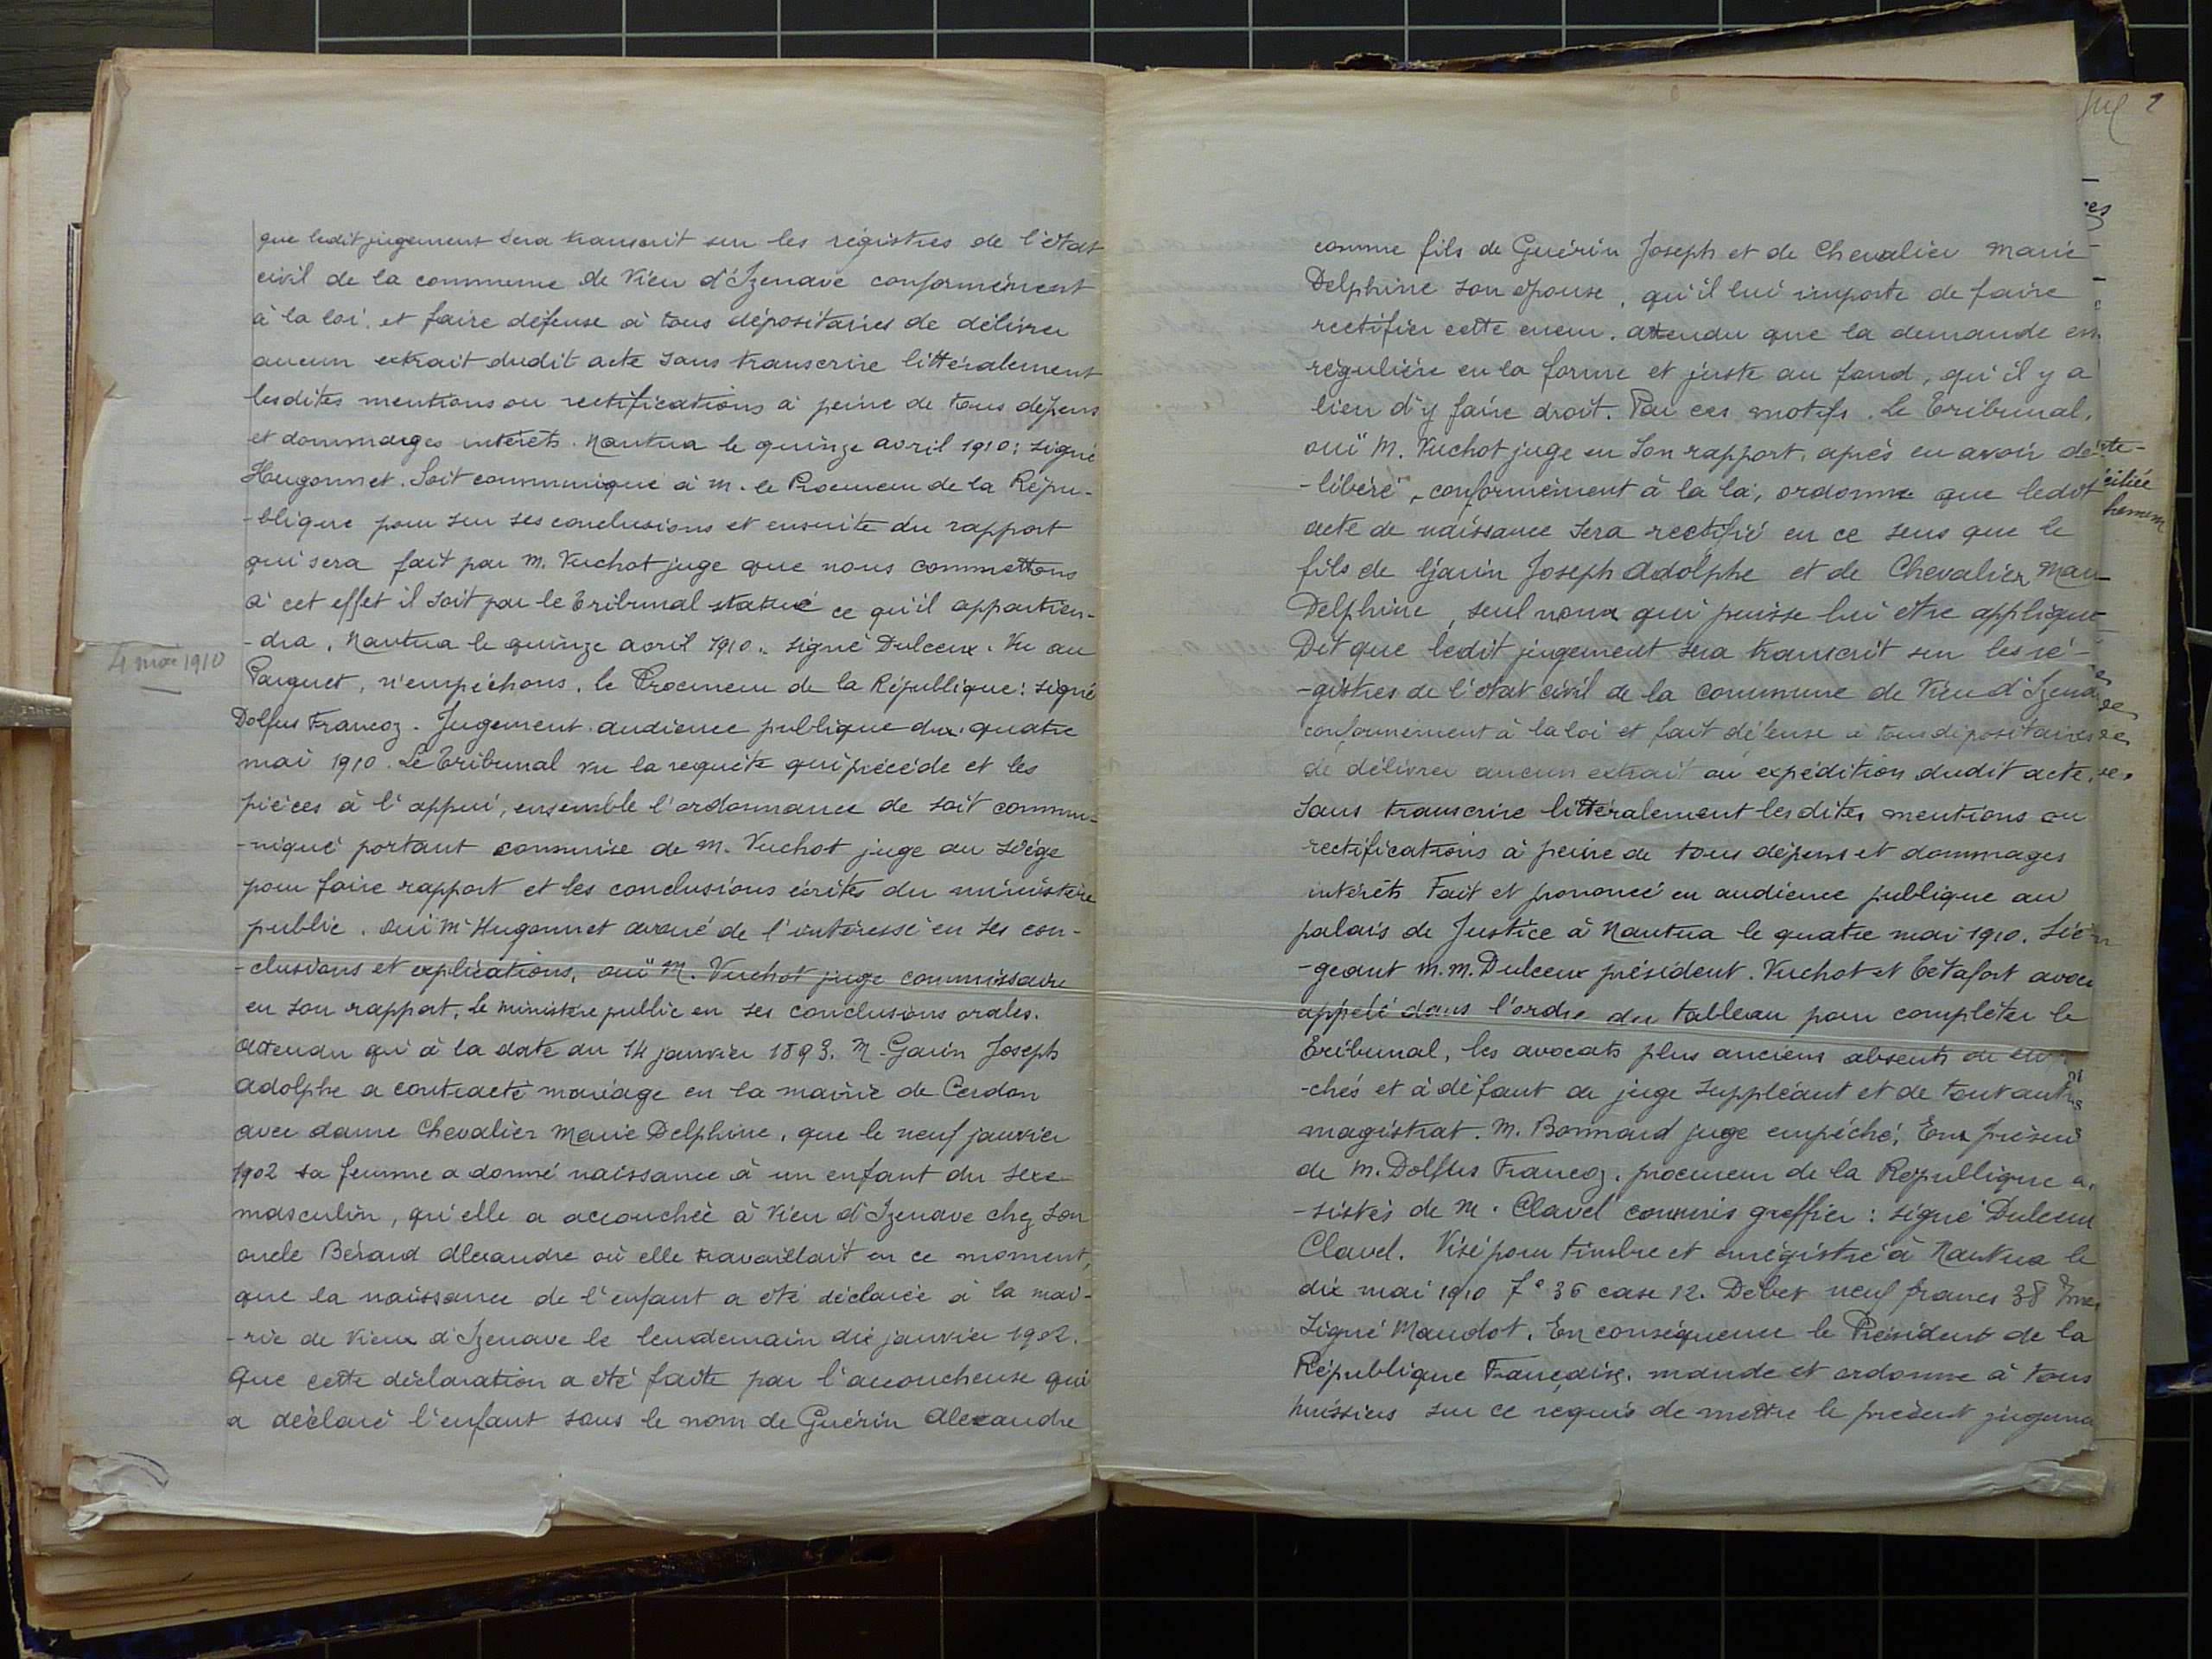 que ledit jugement sera transcrit sur les régistres de l'état
civil de la commune de Vieu d'Izenave conformément
à la loi, et faire défense à tous dépositaires de délivrer
aucun extrait dudit acte sans transcrire littéralement
lesdites mentions ou rectifications à peine de tous dépens
et dommages intérêts. Nantua le quinze avril 1910 : signé
Hougonnet. Soit communiqué à M. le Procureur de la Répu-
-blique pour sur ses conclusions et ensuite du rapport
qui sera fait par M. Vuchot juge que nous commettons
à cet effet il soit par le Tribunal statué ce qu'il appartien-
-dra. Nantua le quinze avril 1910. signé Dulceux. Vu au
4 mai 1910
Parquet, n'empêchons, le Procureur de la République : signé
Dolfus Francoz. Jugement. audience publique du quatre
mai 1910. Le Tribunal vu la requête qui précède et les
pièces à l'appui, ensemble l'ordonnance de soit commu-
-niqué portant commise de M. Vuchot juge au siège
pour faire rapport et les conclusions écrites du ministère
public. ouï Me Hugonnet avoué de l'intéressé en ses con-
-clusions et explications, ouï M. Vuchot juge commissaire
en son rapport, le ministère public en ses conclusions orales.
Attendu qu'à la date du 14 janvier 1893. M. Garin Joseph
Adolphe a contracté mariage en la mairie de Cerdon
avec dame Chevalier Marie Delphine, que le neuf janvier
1902 sa femme a donné naissance à un enfant du sexe
masculin, qu'elle a accouchée à Vieu d'Izenave chez son
oncle Bérard Alexandre où elle travaillait en ce moment,
que la naissance de l'enfant a été déclarée à la mai-
-rie de Vieu d'Izenave le lendemain dix janvier 1902.
Que cette déclaration a été faite par l'accoucheuse qui
a déclaré l'enfant sous le nom de Guérin Alexandre
comme fils de Guérin Joseph et de Chevalier Marie
Delphine son épouse, qu'il lui importe de faire
rectifier cette erreur. attendu que la demande en
régulière en la forme et juste au fond, qu'il y a
lieu d'y faire droit. Par ces motifs. Le Tribunal,
ouï M. Vuchot juge en son rapport, après en avoir dé-
-libéré, conformément à la loi, ordonne que ledit
acte de naissance sera rectifié en ce sens que le
fils de Garin Joseph Adolphe et de Chevalier Mar
Delphine, seul nom qui puisse lui être appliqué
Dit que ledit jugement sera transcrit sur les ré-
-gistres de l'état civil de la commune de Vieu d'Izena
conformément à la loi et fait défense à tous dépositaires
de délivrer aucun extrait ou expédition dudit acte,
sans transcrire littéralement lesdites mentions ou
rectifications à peine de tous dépens et dommages
intérêts Fait et prononcé en audience publique au
palais de Justice à Nantua le quatre mai 1910. Sié-
-geant M.M. Dulceux président. Vuchot et Tétafort avou
appelé dans l'ordre du tableau pour compléter le
Tribunal, les avocats plus anciens absents ou em
-chés et à défaut de juge suppléant et de tout aut
magistrat. M. Bonnard juge empêché. En présen
de M. Dolfus Francoz. procureur de la République a
-sistés de M. Clavel commis greffier : signé Dulceux
Clavel. Visé pour timbre et enrégistré à Nantua le
dix mai 1910 f° 36 case 12. Débet neuf francs 38
Signé Mandot. En conséquence le Président de la
République Française. mande et ordonne à tous
huissiers sur ce requis de mettre le présent jugeme